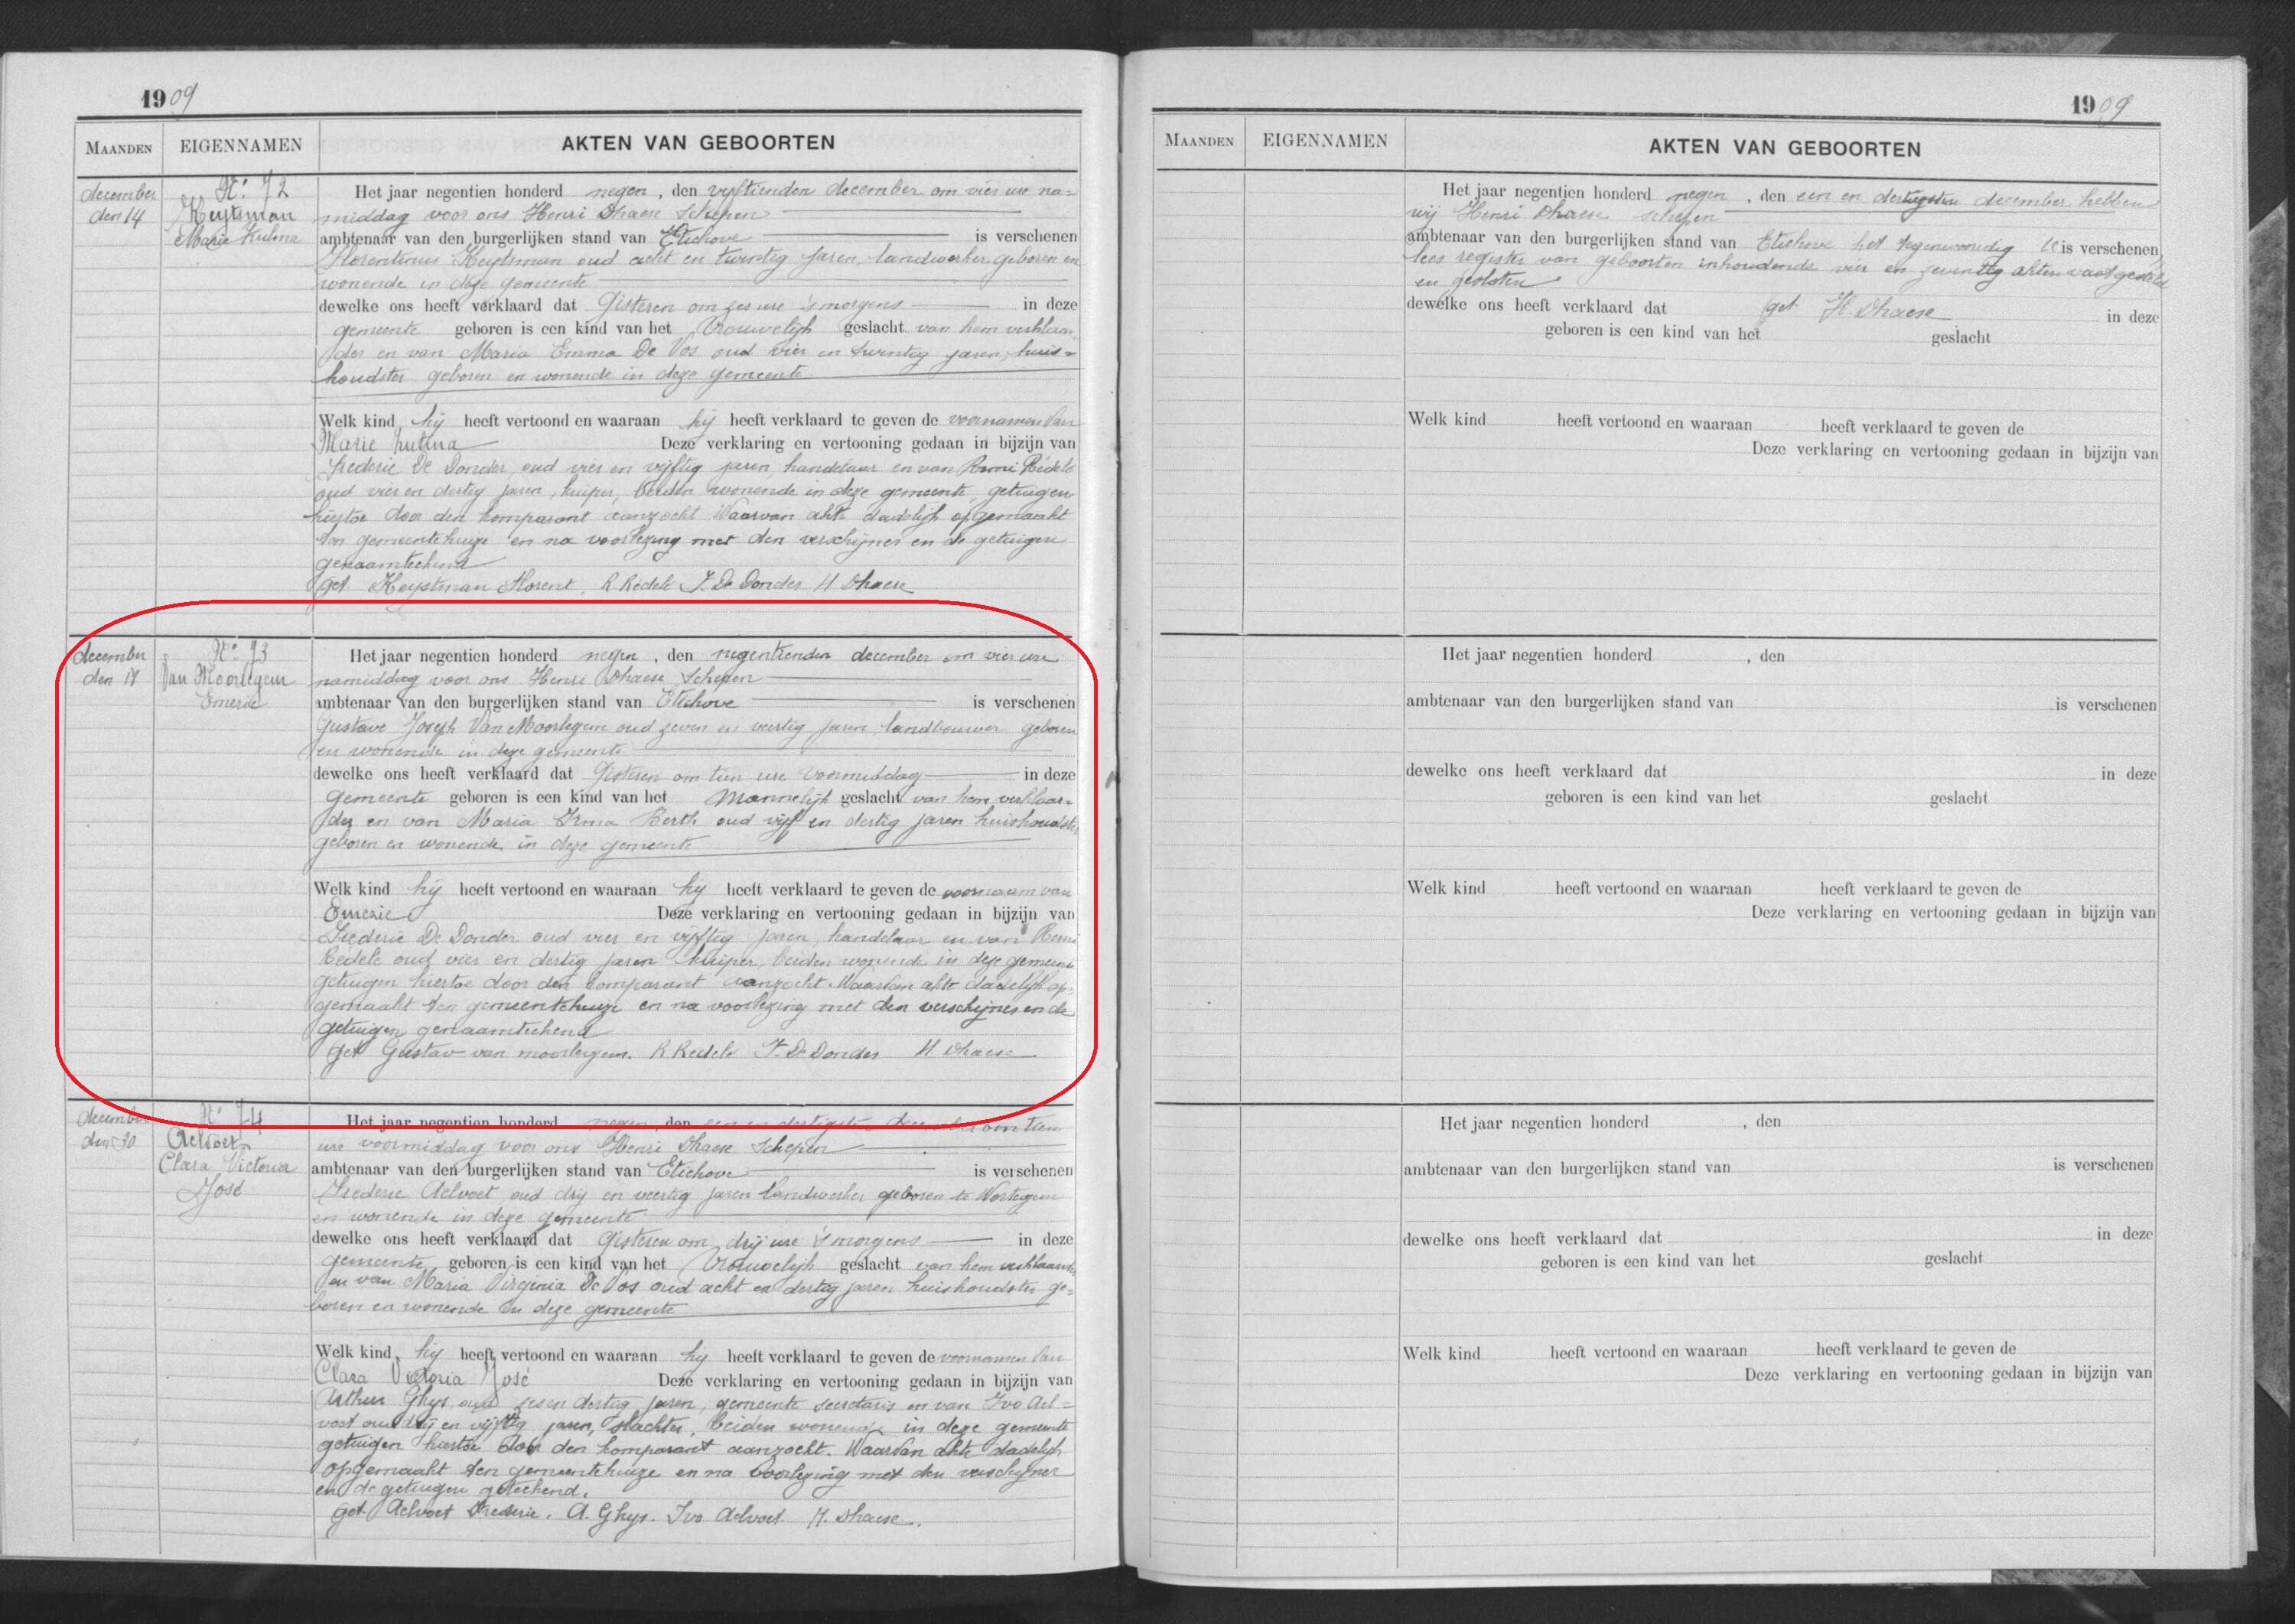 1909
MAANDEN EIGENNAMEN AKTEN VAN GEBOORTEN
december
den 14
No. 72
Keytsman
Marie
Het jaar negentien honderd negen, den vyftienden december om vier ure na=
middag voor ons Henri Dhaese Schepen
ambtenaar van den burgerlijken stand van Etichove is verschenen
Florentinus Keytsman oud acht en twintig jaren, landwerker geboren en
wonende in deze gemeente
dewelke ons heeft verklaard dat Gisteren om zes ure 's morgens in deze
gemeente geboren is een kind van het Vrouwelijk geslacht van hem verklaar=
der en van Maria Emma De Vos oud vier en twintig jaren, huis=
houdster geboren en wonende in deze gemeente
Welk kind hij heeft vertoond en waaraan hij heeft verklaard te geven de voornamen van
Marie Deze verklaring en vertooning gedaan in bijzijn van
Frederic De Donder, oud vier en vijftig jaren, handelaar en van Remi Redele
oud vier en dertig jaren, kuiper, beiden wonende in deze gemeente, getuigen
hiertoe door den komparant aanzocht Waarvan akte dadelijk opgemaakt
ten gemeentehuize en na voorlezing met den verschijner en de getuigen
genaamteekend
get Keytsman Florent, R. Redele F. De Donder H Dhaese
december
den 18
No. 73
Van Moorlegem
Emeric
Het jaar negentien honderd negen, den negentienden december om vier ure
namiddag voor ons Henri Dhaese Schepen
ambtenaar van den burgerlijken stand van Etichove is verschenen
Gustave Joseph Van Moorlegem oud zeven en veertig jaren landbouwer geboren
en wonende in deze gemeente
dewelke ons heeft verklaard dat Gisteren om tien ure voormiddag in deze
gemeente geboren is een kind van het Mannelijk geslacht van hem verklaar=
der en van Maria Irma Berth oud vijf en dertig jaren huishoudster
geboren en wonende in deze gemeente
Welk kind hij heeft vertoond en waaraan hij heeft verklaard te geven de voornaam van
Emeric Deze verklaring en vertooning gedaan in bijzijn van
Frederic De Donder oud vier en vijftig jaren, handelaar en van Remi
Redele oud vier en dertig jaren kuiper, beiden wonende in deze gemeente
getuigen hiertoe door den komparant aanzocht Waarvan akte dadelijk op=
gemaakt ten gemeentehuize en na voorlezing met den verschijner en de
getuigen genaamteekend
get Gustav van moorlegem. R Redele F. De Donder H Dhaese
december
den 30
No. 74
Aelvoet
Clara Victoria
José
Het jaar negentien honderd negen, den een en dertigste december om tien
ure voormiddag voor ons Henri Dhaese Schepen
ambtenaar van den burgerlijken stand van Etichove is verschenen
Frederic Aelvoet, oud drij en veertig jaren landwerker geboren te Wortegem
en wonende in deze gemeente
dewelke ons heeft verklaard dat gisteren om drij ure 's morgens in deze
gemeente geboren is een kind van het Vrouwelijk geslacht van hem verklaarder
en van Maria Virginia De Vos oud acht en dertig jaren huishoudster ge=
boren en wonende in deze gemeente
Welk kind hij heeft vertoond en waaraan hij heeft verklaard te geven de voornamen van
Clara Victoria José Deze verklaring en vertooning gedaan in bijzijn van
Arthur Ghys, oud zes en dertig jaren, gemeente secretaris en van Ivo Ael=
voet oud drij en vijftig jaren, slachter, beiden wonende in deze gemeente
getuigen hiertoe door den komparant aanzocht. Waarvan akte dadelijk
opgemaakt ten gemeentehuize en na voorlezing met den verschijner
en de getuigen geteekend.
get. Aelvoet Frederic. A. Ghys. Ivo Aelvoet. H. Dhaese.
1909
MAANDEN EIGENNAMEN AKTEN VAN GEBOORTEN
Het jaar negentien honderd negen, den een en dertigsten december hebben
wij Henri Dhaese schepen
ambtenaar van den burgerlijken stand van Etichove het tegenwoordig is verschenen
register van geboorten inhoudende vier en zeventig akten vastgesteld
en gesloten
dewelke ons heeft verklaard dat get H. Dhaese in deze
geboren is een kind van het geslacht
Welk kind heeft vertoond en waaraan heeft verklaard te geven de
Deze verklaring en vertooning gedaan in bijzijn van
Het jaar negentien honderd , den
ambtenaar van den burgerlijken stand van is verschenen
dewelke ons heeft verklaard dat in deze
geboren is een kind van het geslacht
Welk kind heeft vertoond en waaraan heeft verklaard te geven de
Deze verklaring en vertooning gedaan in bijzijn van
Het jaar negentien honderd , den
ambtenaar van den burgerlijken stand van is verschenen
dewelke ons heeft verklaard dat in deze
geboren is een kind van het geslacht
Welk kind heeft vertoond en waaraan heeft verklaard te geven de
Deze verklaring en vertooning gedaan in bijzijn van